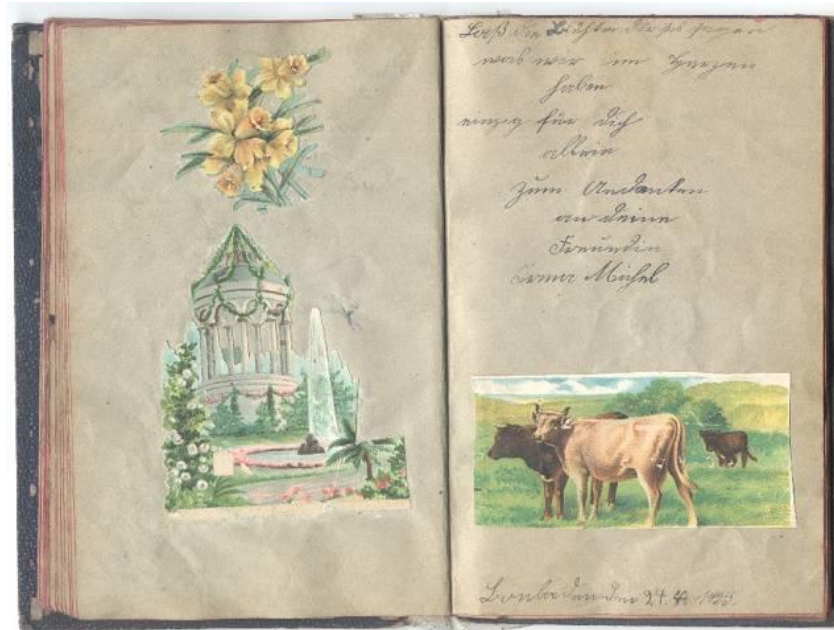 Laß die sagen
was wir im Herzen
haben
einzig für dich
allein
Zum Andenken
an deine
Freundin
Irma Michel
Bonbaden den 24. 4.